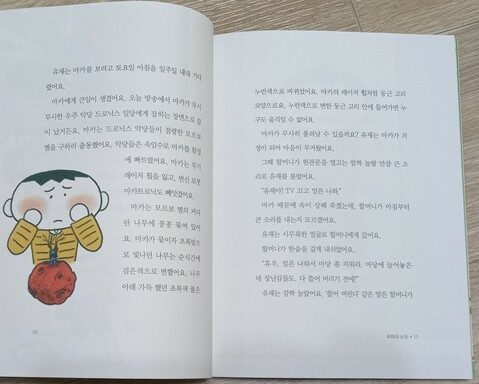 유재는 마카를 보려고 토요일 아침을 일주일 내내 기다
렸어요.
마카에게 큰일이 생겼어요. 오늘 방송에서 마카가 무시
무시한 우주 악당 드로닉스 일당에게 갇히는 장면으로 끝
이 났거든요. 마카는 드로닉스 악당들이 점령한 모르보
별을 구하러 출동했어요. 악당들은 속임수로 마카를 함정
에 빠트렸어요. 마카는 무기
레이저 훨을 잃고, 변신 로봇
마카트로니도 빼앗겼어요.
마카는 모르보 별의 커다
란 나무에 꽁꽁 묶여 있어
요. 마카가 묶이자 초록빛으
로 빛나던 나무는 순식간에
검은색으로 변했어요. 나무
아래 가득 했던 초록색 풀은
10
누런색으로 바뀌었어요. 마카의 레이저 훨처럼 둥근 고리
모양으로요. 누런색으로 변한 둥근 고리 안에 들어가면 누
구도 움직일 수 없어요.
마카가 무사히 풀려날 수 있을까요? 유재는 마카가 걱
정이 되어 마음이 무거웠어요.
그때 할머니가 현관문을 열고는 깜짝 놀랄 만큼 큰 소
리로 유재를 불렀어요.
"유재야! TV 끄고 얼른 나와."
마카 때문에 속이 상해 죽겠는데, 할머니가 아침부터
큰 소리를 내는지 모르겠어요.
유재는 시무룩한 얼굴로 할머니에게 갔어요.
할머니가 한숨을 깊게 내쉬었어요.
"휴우, 얼른 나와서 마당 좀 치워라. 마당에 늘어놓은
네 장난감들도. 다 쓸어 버리기 전에!"
유재는 깜짝 놀랐어요. '쓸어 버린다' 같은 말은 할머니가
11